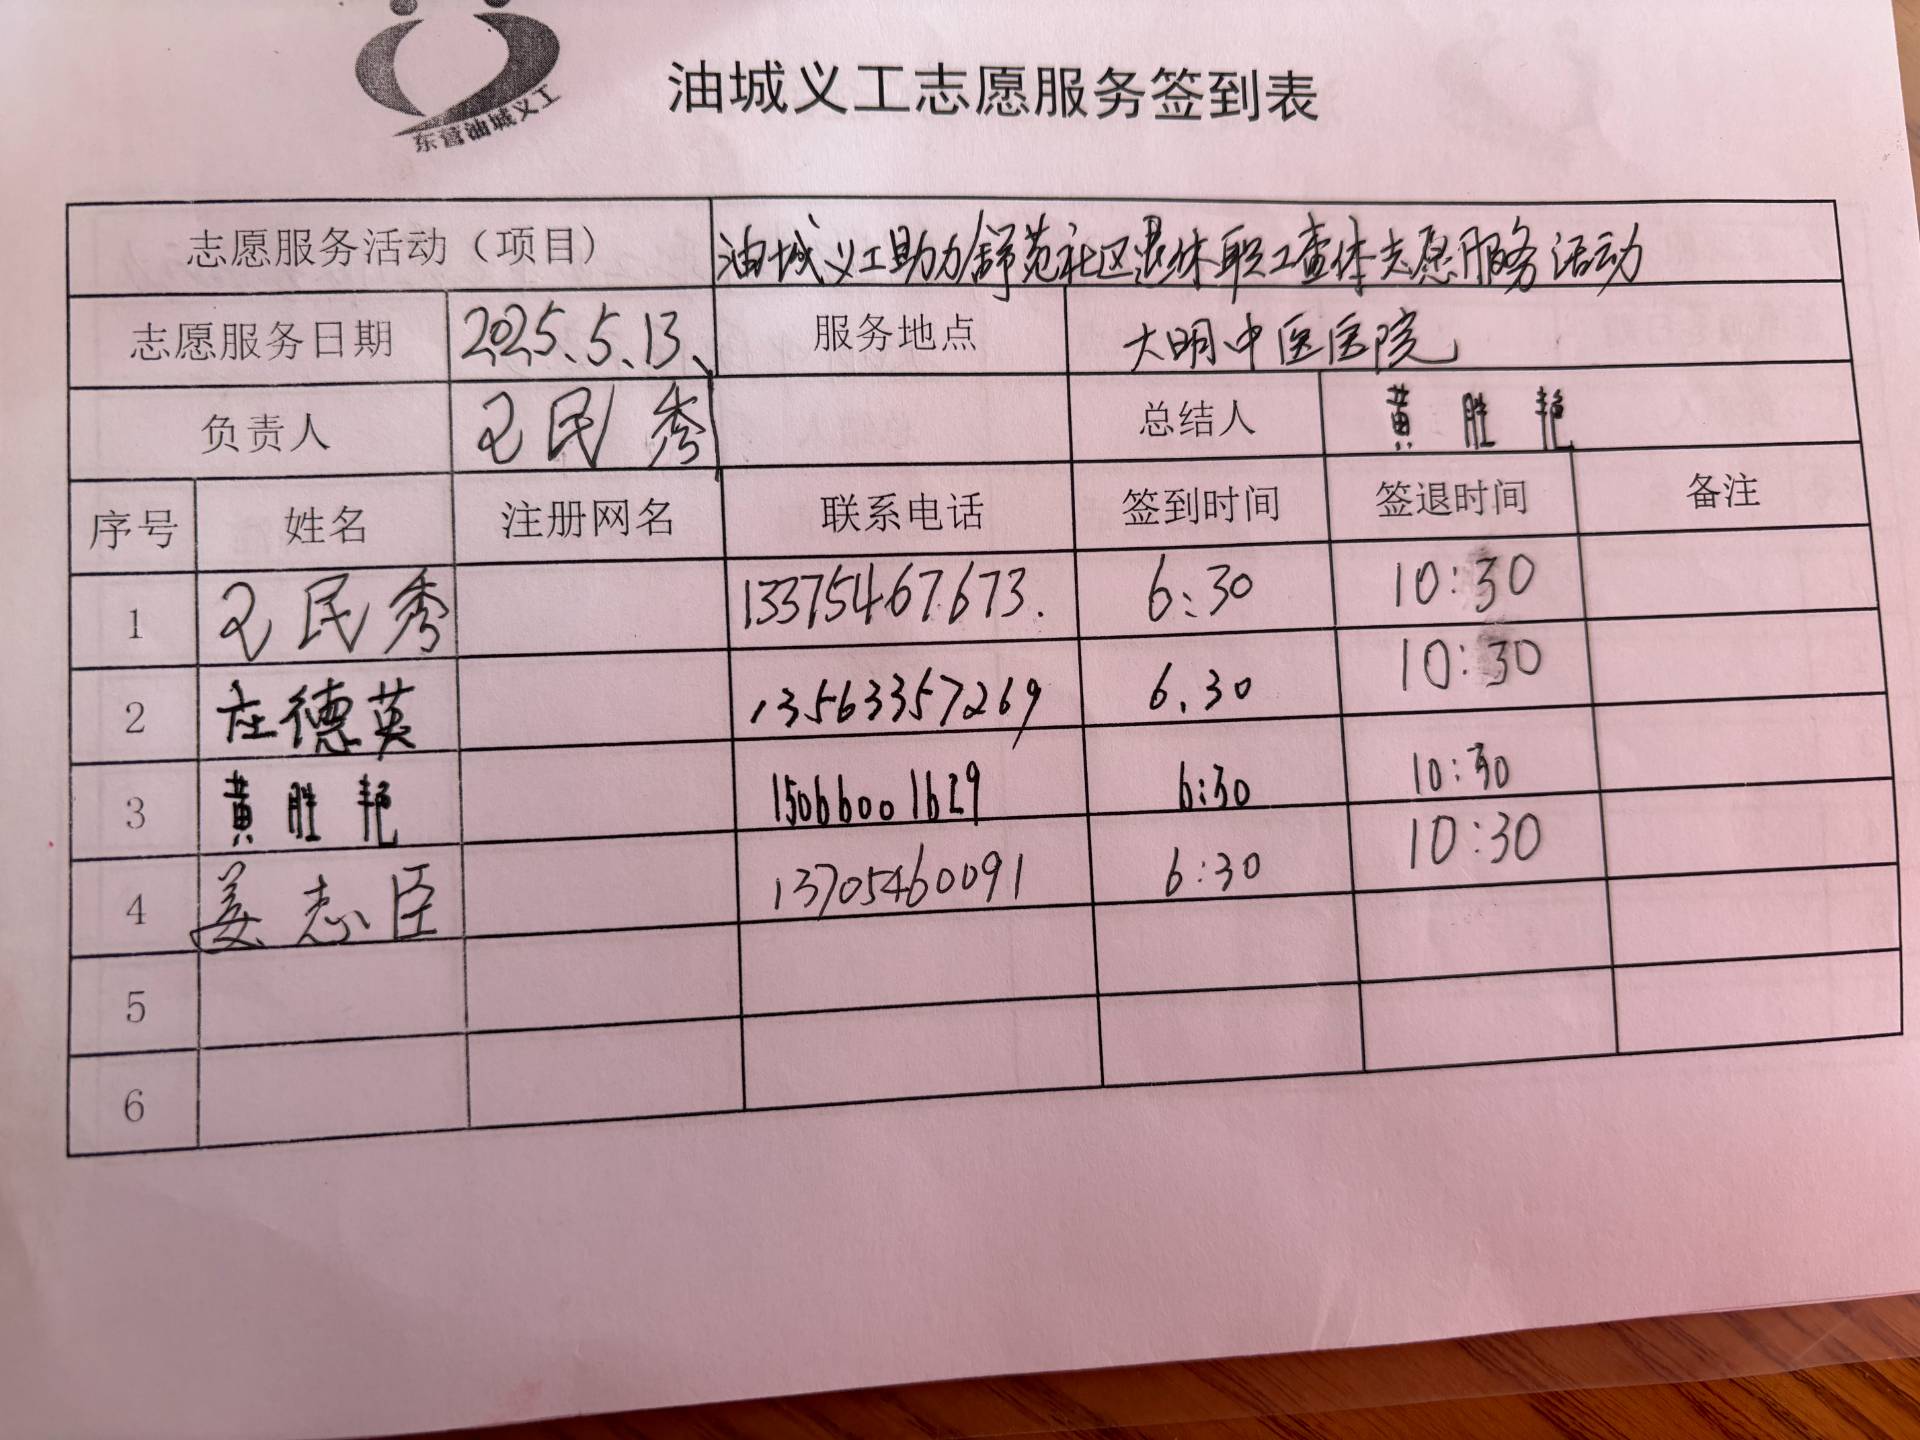 东营油城义工
油城义工志愿服务签到表
志愿服务活动（项目） 油城义工助力舒苑社区退休职工查体志愿服务活动
志愿服务日期 2025.5.13、 服务地点 大明中医医院
负责人 王民秀 总结人 黄胜艳
序号 姓名 注册网名 联系电话 签到时间 签退时间 备注
1 王民秀 13375467673. 6:30 10:30
2 庄德英 13563357269 6.30 10:30
3 黄胜艳 15066001629 6:30 10:30
4 姜志臣 13705460091 6:30 10:30
5
6